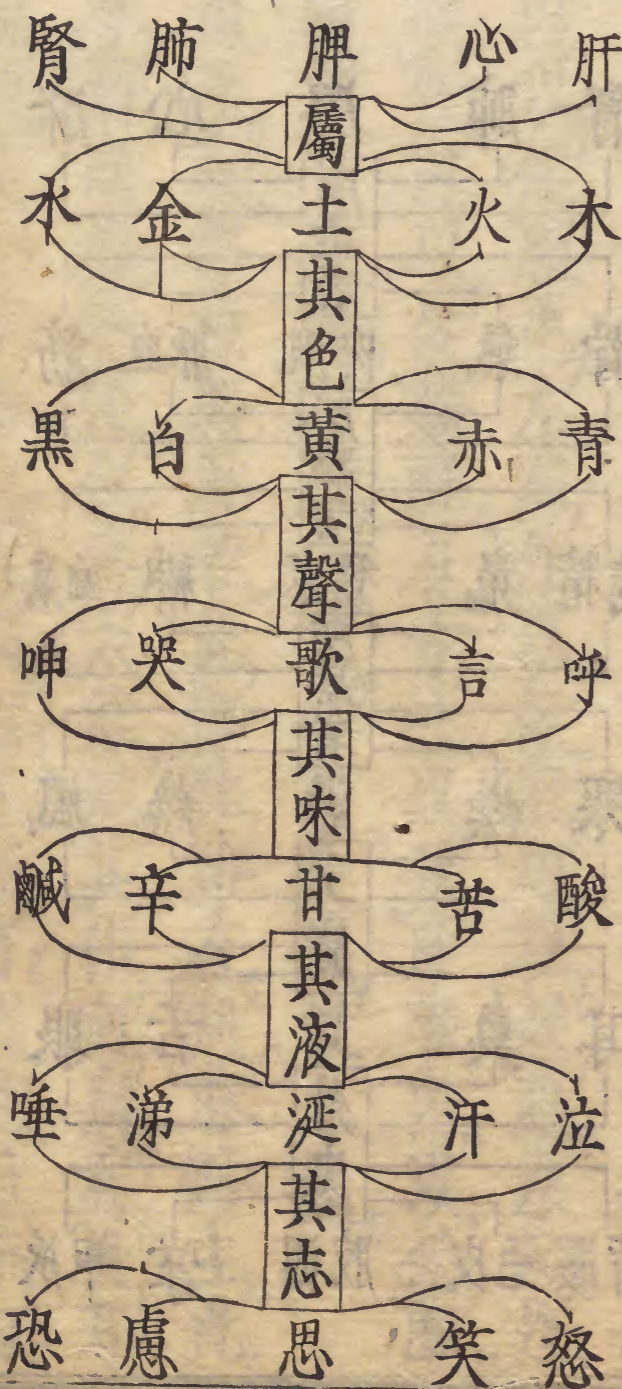 肝 心 脾 肺 腎
屬
木 火 土 金 水
其色
青 赤 黃 白 黒
其聲
呼 言 歌 哭 呻
其味
酸 苦 甘 辛 鹹
其液
泣 汗 涎 涕 唾
其志
怒 笑 思 慮 恐